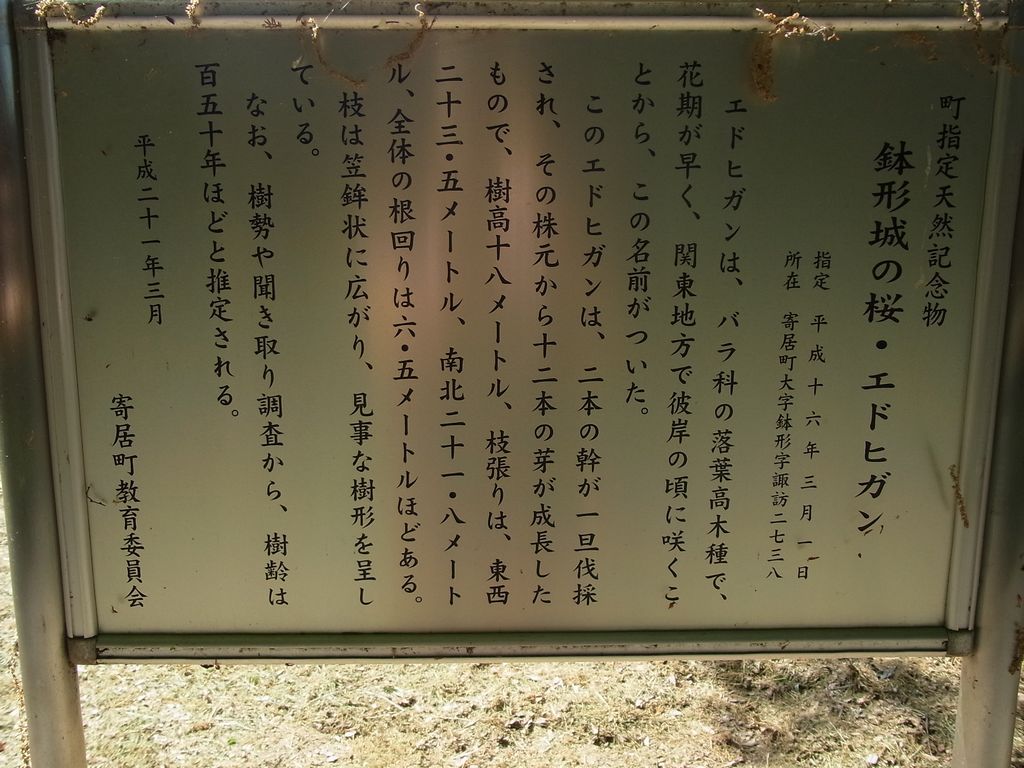 町指定天然記念物
鉢形城の桜・エドヒガン
指定 平成十六年三月一日
所在 寄居町大字鉢形字諏訪二七三八
エドヒガンは、バラ科の落葉高木種で、
花期が早く、関東地方で彼岸の頃に咲くこ
とから、この名前がついた。
このエドヒガンは、二本の幹が一旦伐採
され、その株元から十二本の芽が成長した
もので、樹高十八メートル、枝張りは、東西
二十三・五メートル、南北二十一・八メート
ル、全体の根回りは六・五メートルほどある。
枝は笠鉾状に広がり、見事な樹形を呈し
ている。
なお、樹勢や聞き取り調査から、樹齢は
百五十年ほどと推定される。
平成二十一年三月
寄居町教育委員会